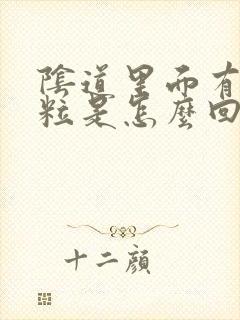 陰道里而有
粒是怎麼回
十二顏